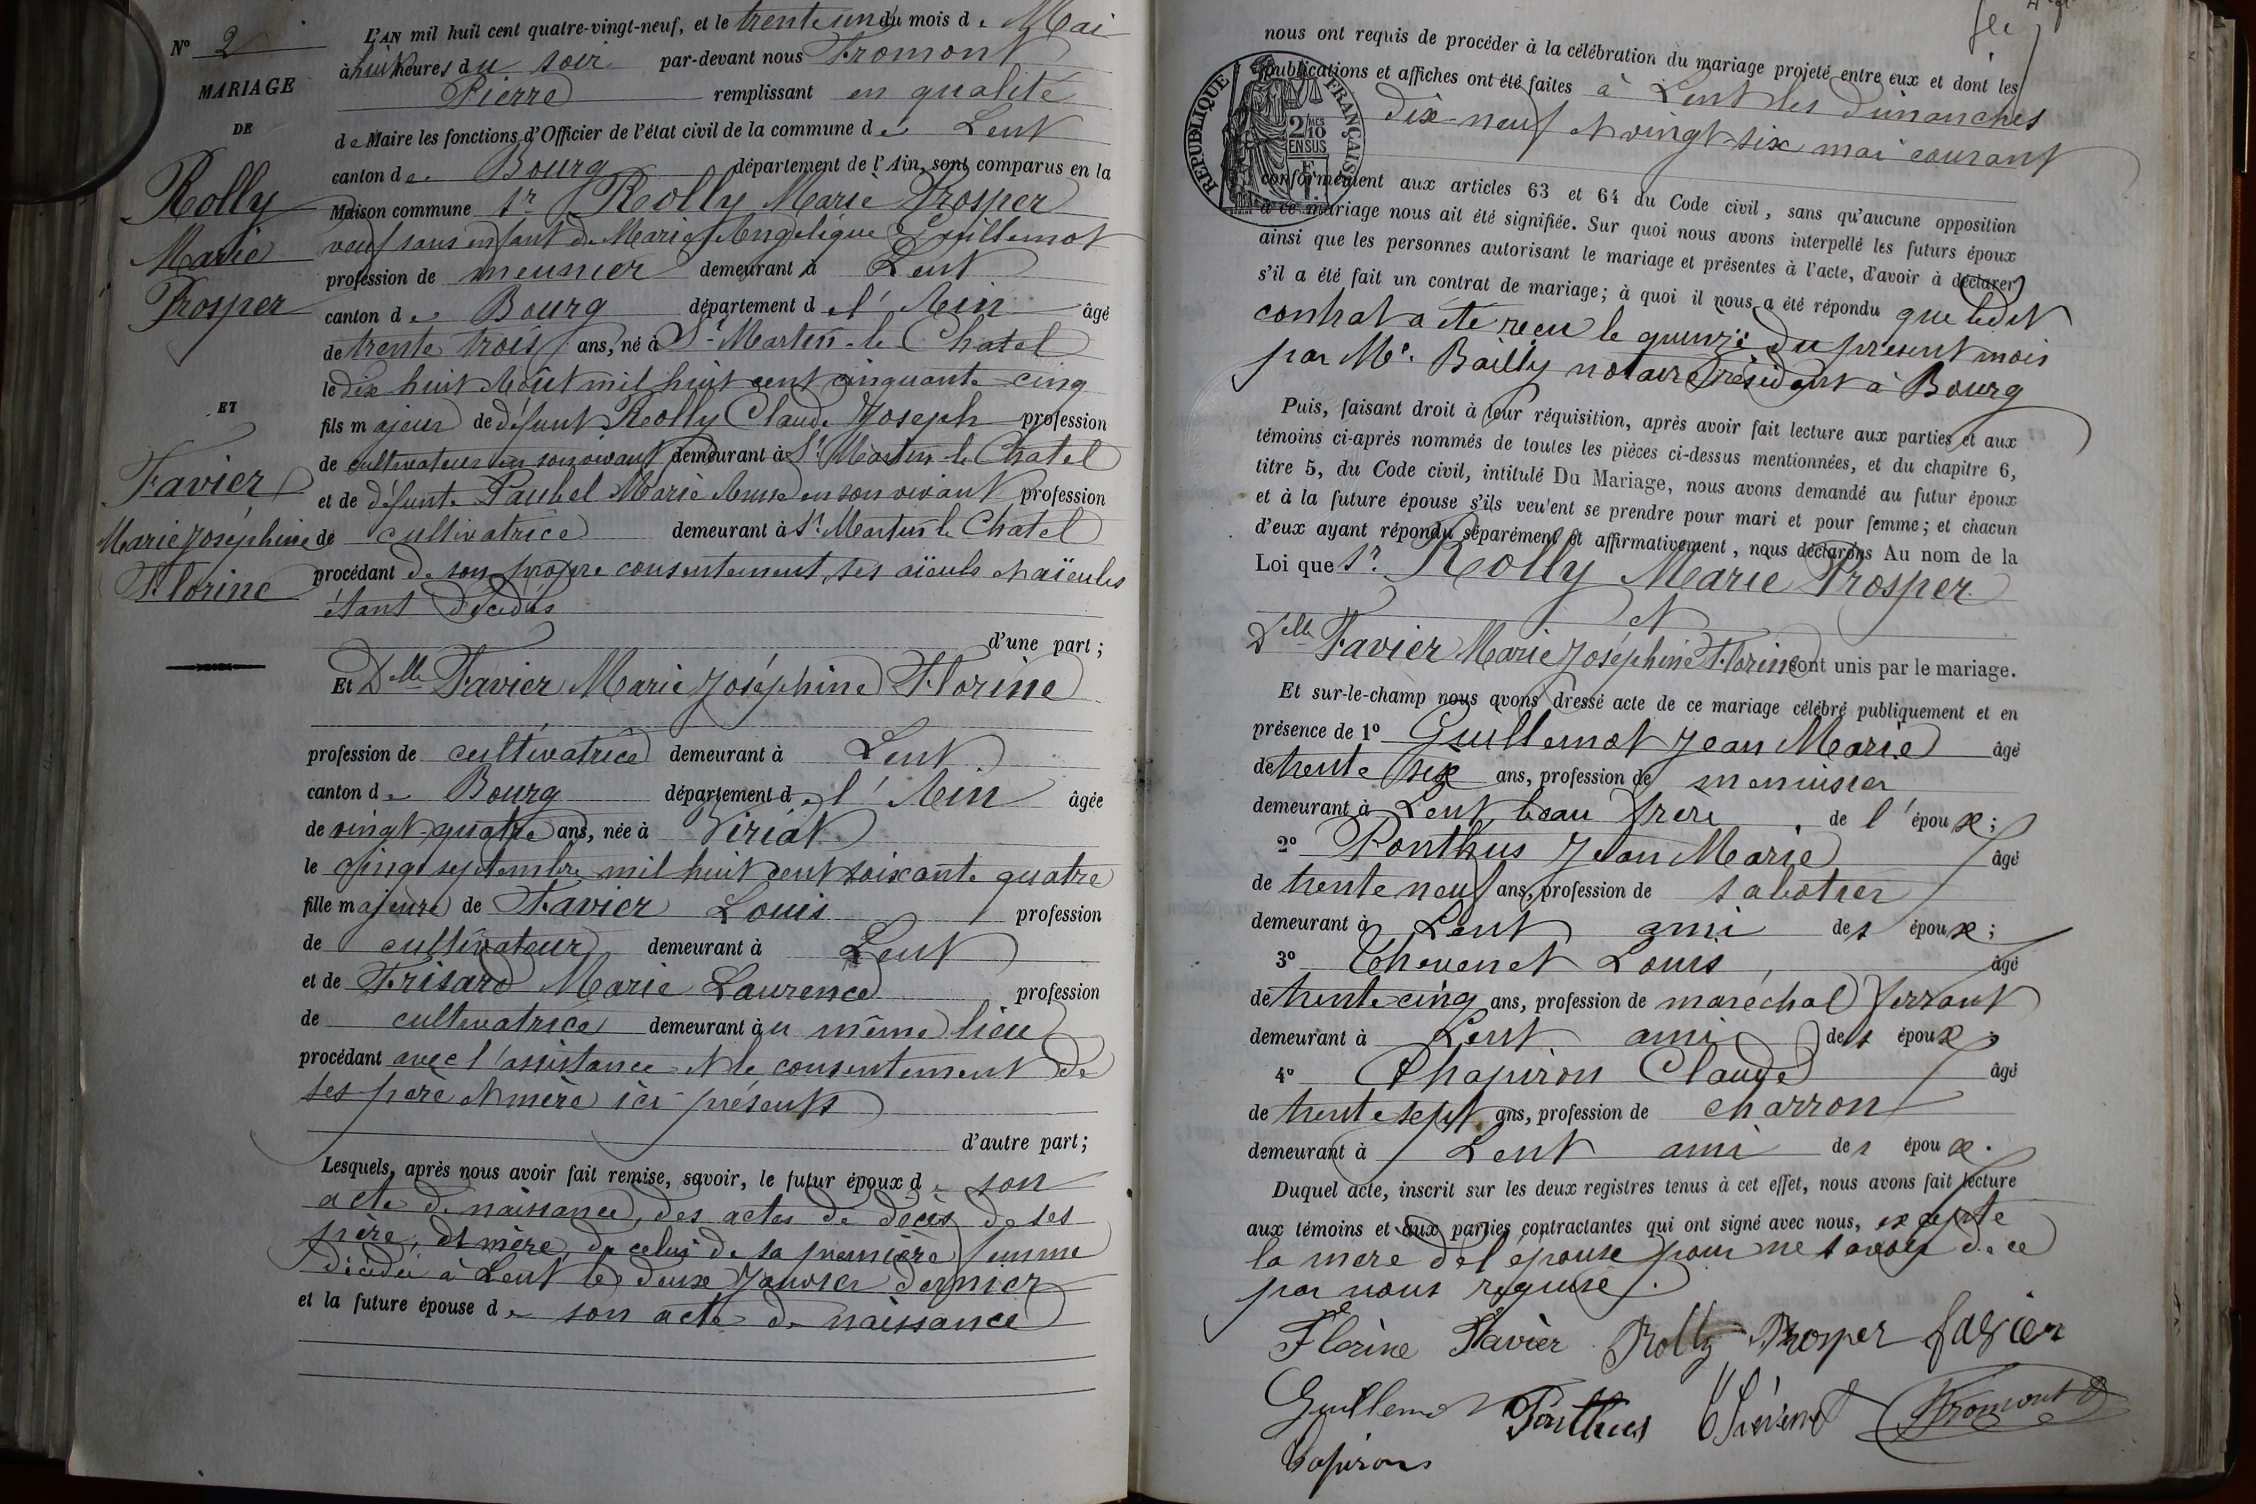 N° 2
MARIAGE
DE
Rolly
Marie
Prosper
ET
Favier
Marie Joséphine
Florine
L'AN mil huit cent quatre-vingt-neuf, et le trente un du mois de Mai
à huit heures du soir par-devant nous Fromont
Pierre remplissant en qualité
de Maire les fonctions d'Officier de l'état civil de la commune de Lent
canton de Bourg département de l'Ain, sont comparus en la
Maison commune Sr Rolly Marie Prosper
veuf sans enfant de Marie Angélique Guillemot
profession de meunier demeurant à Lent
canton de Bourg département de l'Ain âgé
de trente trois ans, né à St Martin-le Chatel
le dix huit Août mil huit cent cinquante cinq
fils majeur de défunt Rolly Claude Joseph profession
de cultivateur en son vivant demeurant à St Martin-le Chatel
et de défunte Paubel Marie Anne en son vivant profession
de cultivatrice demeurant à St Martin le Chatel
procédant de son propre consentement, ses aïeuls et aïeules
étant décédés
d'une part;
Et Delle Favier Marie Joséphine Florine
profession de cultivatrice demeurant à Lent
canton de Bourg département de l'Ain âgée
de vingt-quatre ans, née à Viriat
le cinq septembre mil huit cent soixante quatre
fille majeure de Favier Louis profession
de cultivateur demeurant à Lent
et de Frisard Marie Laurence profession
de cultivatrice demeurant au même lieu
procédant avec l'assistance et le consentement de
ses père et mère ici présents
d'autre part;
Lesquels, après nous avoir fait remise, savoir, le futur époux de son
acte de naissance, des actes de décès de ses
père, et mère, de celui de sa première femme
décédée à Lent le deux Janvier dernier
et la future épouse de son acte de naissance
nous ont requis de procéder à la célébration du mariage projeté entre eux et dont les
publications et affiches ont été faites à Lent les dimanches
dix-neuf et vingt-six mai courant
RÉPUBLIQUE FRANÇAISE
2/10
EN SUS
conformément aux articles 63 et 64 du Code civil, sans qu'aucune opposition
à ce mariage nous ait été signifiée. Sur quoi nous avons interpellé les futurs époux
ainsi que les personnes autorisant le mariage et présentes à l'acte, d'avoir à déclarer
s'il a été fait un contrat de mariage; à quoi il nous a été répondu que ledit
contrat a été reçu le quinze du présent mois
par Me. Bailly notaire résidant à Bourg
Puis, faisant droit à leur réquisition, après avoir fait lecture aux parties et aux
témoins ci-après nommés de toutes les pièces ci-dessus mentionnées, et du chapitre 6,
titre 5, du Code civil, intitulé Du Mariage, nous avons demandé au futur époux
et à la future épouse s'ils veulent se prendre pour mari et pour femme; et chacun
d'eux ayant répondu séparément et affirmativement, nous déclarons Au nom de la
Loi que Sr Rolly Marie Prosper
et
Delle Favier Marie Joséphine Florine sont unis par le mariage.
Et sur-le-champ nous avons dressé acte de ce mariage célébré publiquement et en
présence de 1° Guillemot Jean Marie âgé
de trente six ans, profession de menuisier
demeurant à Lent, beau frère de l'époux;
2° Ponthus Jean Marie âgé
de trente neuf ans, profession de sabotier
demeurant à Lent ami des époux;
3° Thevenet Louis, âgé
de trente cinq ans, profession de maréchal ferrant
demeurant à Lent ami des époux;
4° Chapiron Claude âgé
de trente sept ans, profession de charron
demeurant à Lent ami des époux.
Duquel acte, inscrit sur les deux registres tenus à cet effet, nous avons fait lecture
aux témoins et aux parties contractantes qui ont signé avec nous, excepté
la mère de l'épouse pour ne savoir de ce
par nous requise.
Florine Favier Rolly Prosper favier
Guillemot Ponthus Thévenet Fromont
Chapiron